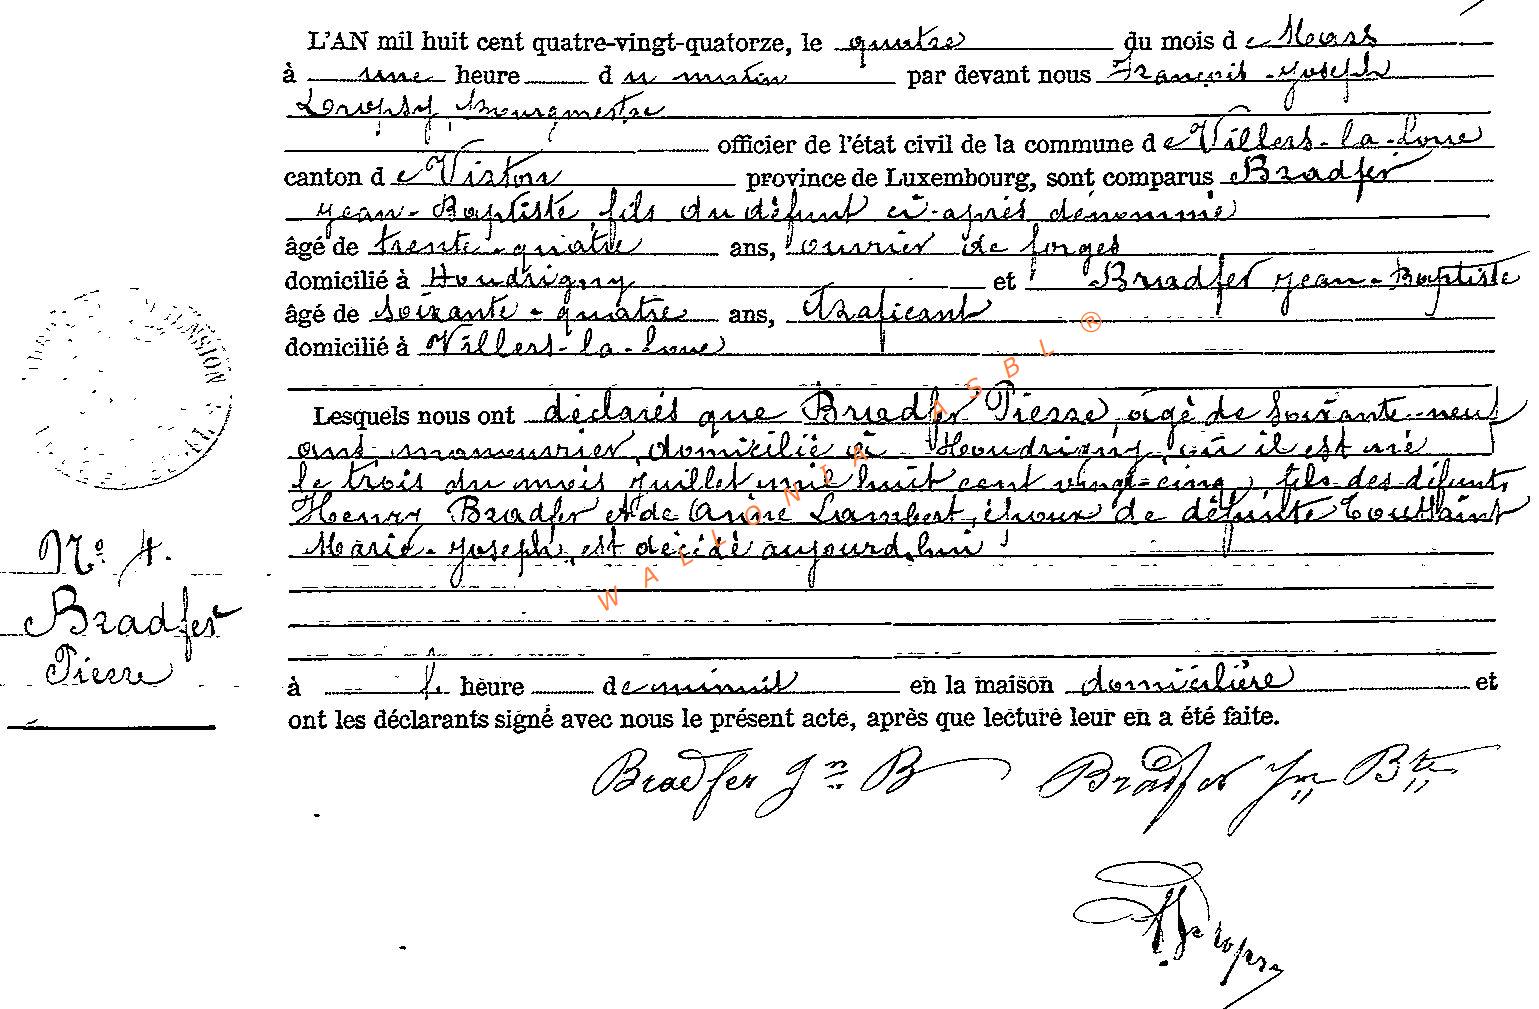 L'AN mil huit cent quatre-vingt-quatorze, le quatre du mois de Mars
à une heure du matin par devant nous François-Joseph
Bourgmestre
officier de l'état civil de la commune de Villers-la-Loue
canton de Virton province de Luxembourg, sont comparus Bradfer
Jean-Baptiste, fils du défunt ci-après dénommé
âgé de trente-quatre ans, ouvrier de forges
domicilié à Houdrigny et Bradfer Jean-Baptiste
âgé de soixante-quatre ans, Traficant
domicilié à Villers-la-Loue
Lesquels nous ont déclarés que Bradfer Pierre, âgé de soixante-neuf
ans, manouvrier, domicilié à Houdrigny, où il est né
le trois du mois Juillet mil huit cent vingt-cinq, fils des défunts
Henry Bradfer et de Anne Lambert, époux de défunte Toussaint
Marie-Joseph, est décédé aujourd'hui
à heure de minuit en la maison domicilière et
ont les déclarants signé avec nous le présent acte, après que lecture leur en a été faite.
N° 4.
Bradfer
Pierre
Bradfer Jn B Bradfer Jn Bte
WALLONIA ASBL ®